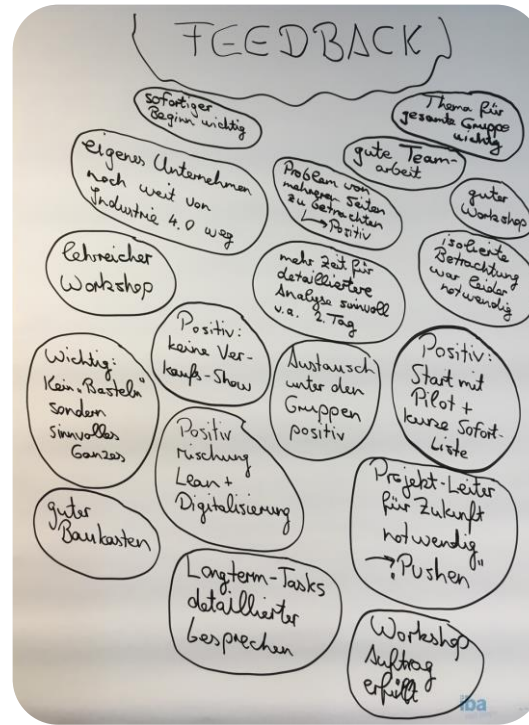 FEEDBACK
sofortiger
Beginn wichtig
Thema für
gesamte Gruppe
wichtig
eigenes Unternehmen
noch weit von
Industrie 4.0 weg
Problem von
mehreren Seiten
zu betrachten
→ Positiv
gute Team-
arbeit
guter
Workshop
lehrreicher
Workshop
mehr Zeit für
detailliertere
Analyse sinnvoll
v.a. 2. Tag
isolierte
Betrachtung
war leider
notwendig
Positiv:
keine Ver-
kaufs-Show
Wichtig:
Kein „Basteln"
sondern
sinnvolles
Ganzes
Austausch
unter den
Gruppen
positiv
Positiv:
Start mit
Pilot +
kurze Sofort-
Liste
Positiv
Mischung
Lean +
Digitalisierung
guter
Baukasten
Projekt-Leiter
für Zukunft
notwendig
→ „Pushen"
Longterm-Tasks
detaillierter
besprechen
Workshop
Auftrag
erfüllt
iba